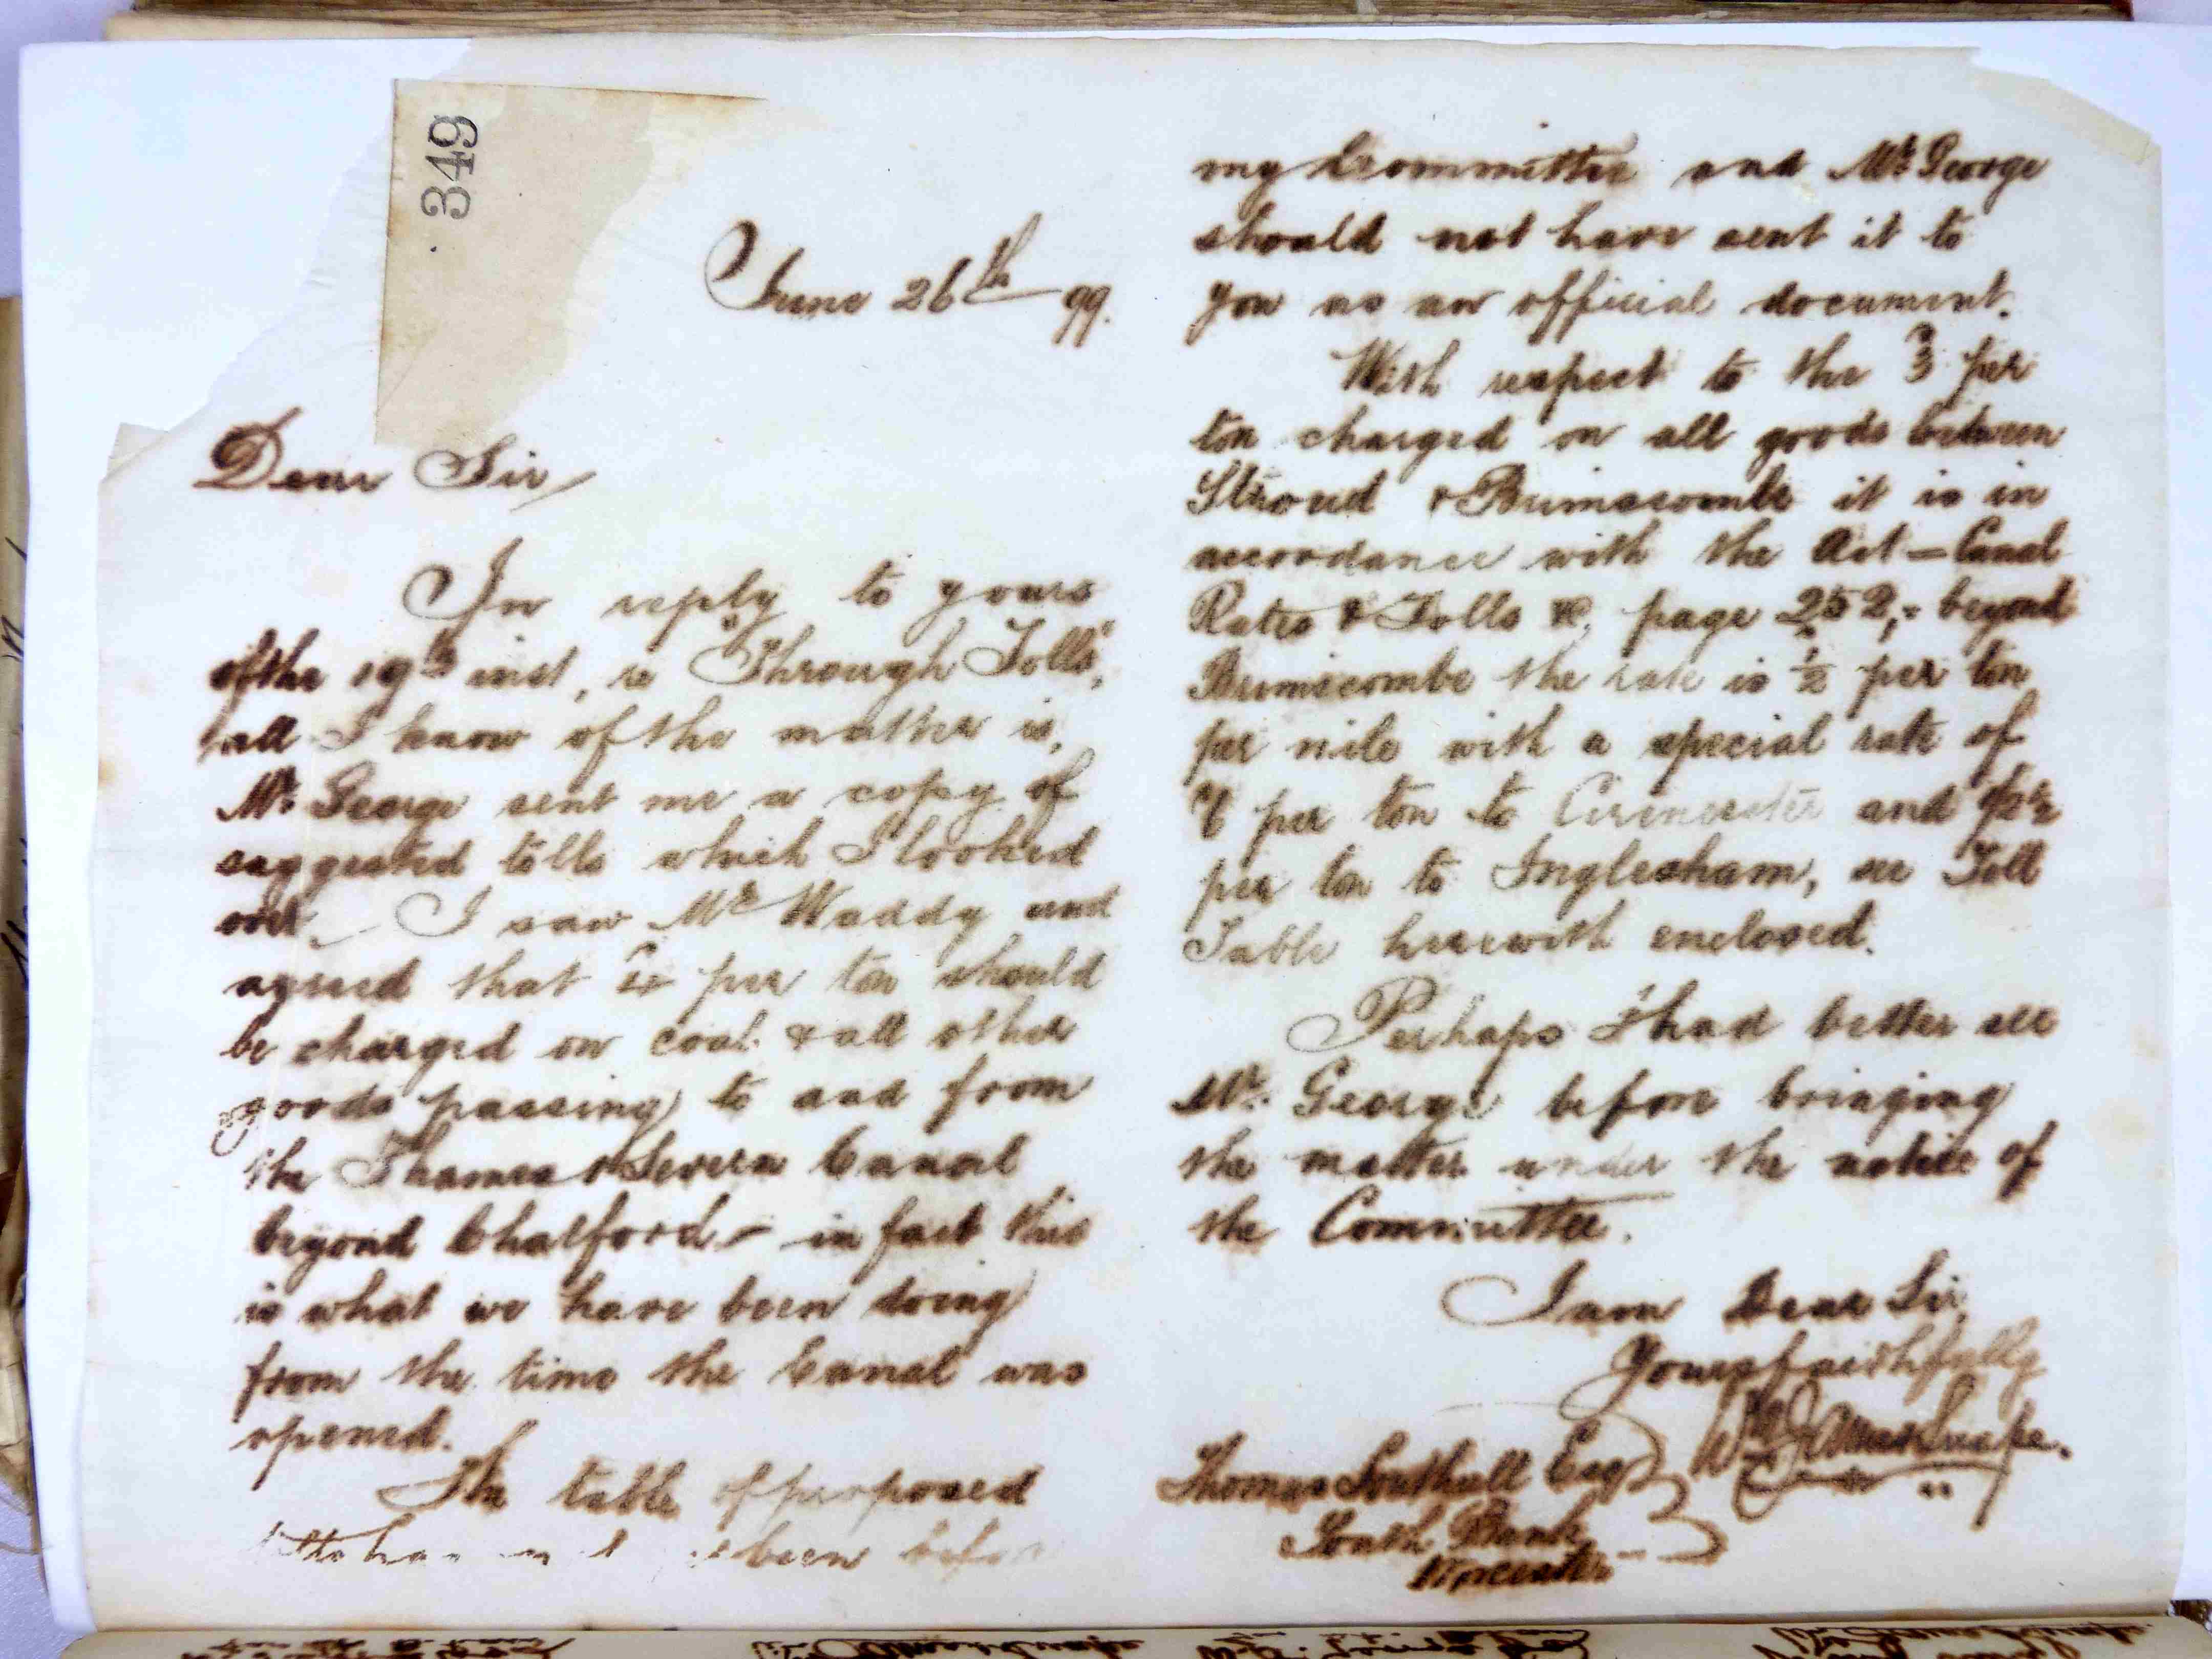 349
June 26th 99.
Dear Sir,
In reply to yours
of the 19th inst, re "Through Tolls",
all I know of the matter is,
Mr. George sent me a copy of
suggested tolls which I looked
over, - I saw Mr Waddy and
agreed that per ton should
be charged on coal & all other
goods passing to and from
the Thames & Severn Canal
beyond Chalford - in fact this
is what we have been doing
from the time the Canal was
opened.
The table of proposed
been before
my Committee and Mr George
should not have sent it to
you as an official document.
With respect to the 3 per
ton charged on all goods between
Stroud & Brimscombe it is in
accordance with the Act - Canal
Rates & Tolls &c, page 252, - beyond
Brimscombe the rate is ½ per ton
per mile with a special rate of
per ton to Cirencester and
per ton to Inglesham, see Toll
Table herewith enclosed.
Perhaps I had better see
Mr. George before bringing
the matter under the notice of
the Committee.
I am Dear Sir,
Yours faithfully
Wm J. Snape.
Thomas Southall Esq
South Bank
Worcester